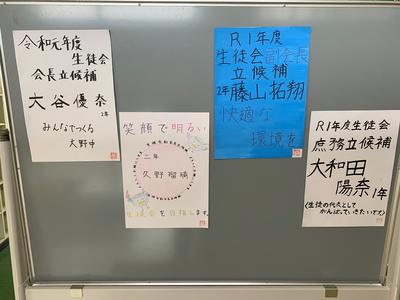 令和元年度
生徒会
会長立候補
大谷優奈
2年
みんなでつくる
大野中
笑顔で明るい
二年
久野瑠晴
生徒会を目指します。
R1年度
生徒会副会長
立候補
2年藤山拓翔
快適な
環境を
R1年度生徒会
庶務立候補
大和田
陽奈1年
(生徒の代表として
がんばっていきたいです)